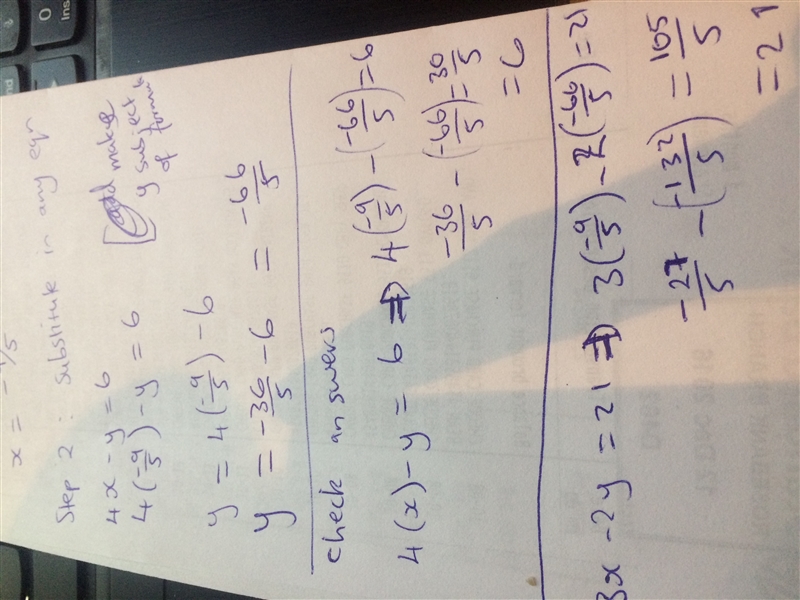 x = -9/5
Step 2 : Substitute in any eqn
4x - y = 6
4(-9/5) - y = 6
[and make
y subject
of formula
y = 4(-9/5) - 6
y = -36/5 - 6 = -66/5
check answers
4(x) - y = 6 ⇒ 4(-9/5) - (-66/5) = 6
-36/5 - (-66/5) = 30/5
= 6
3x - 2y = 21 ⇒ 3(-9/5) - 2(-66/5) = 21
-27/5 - (-132/5) = 105/5
= 21